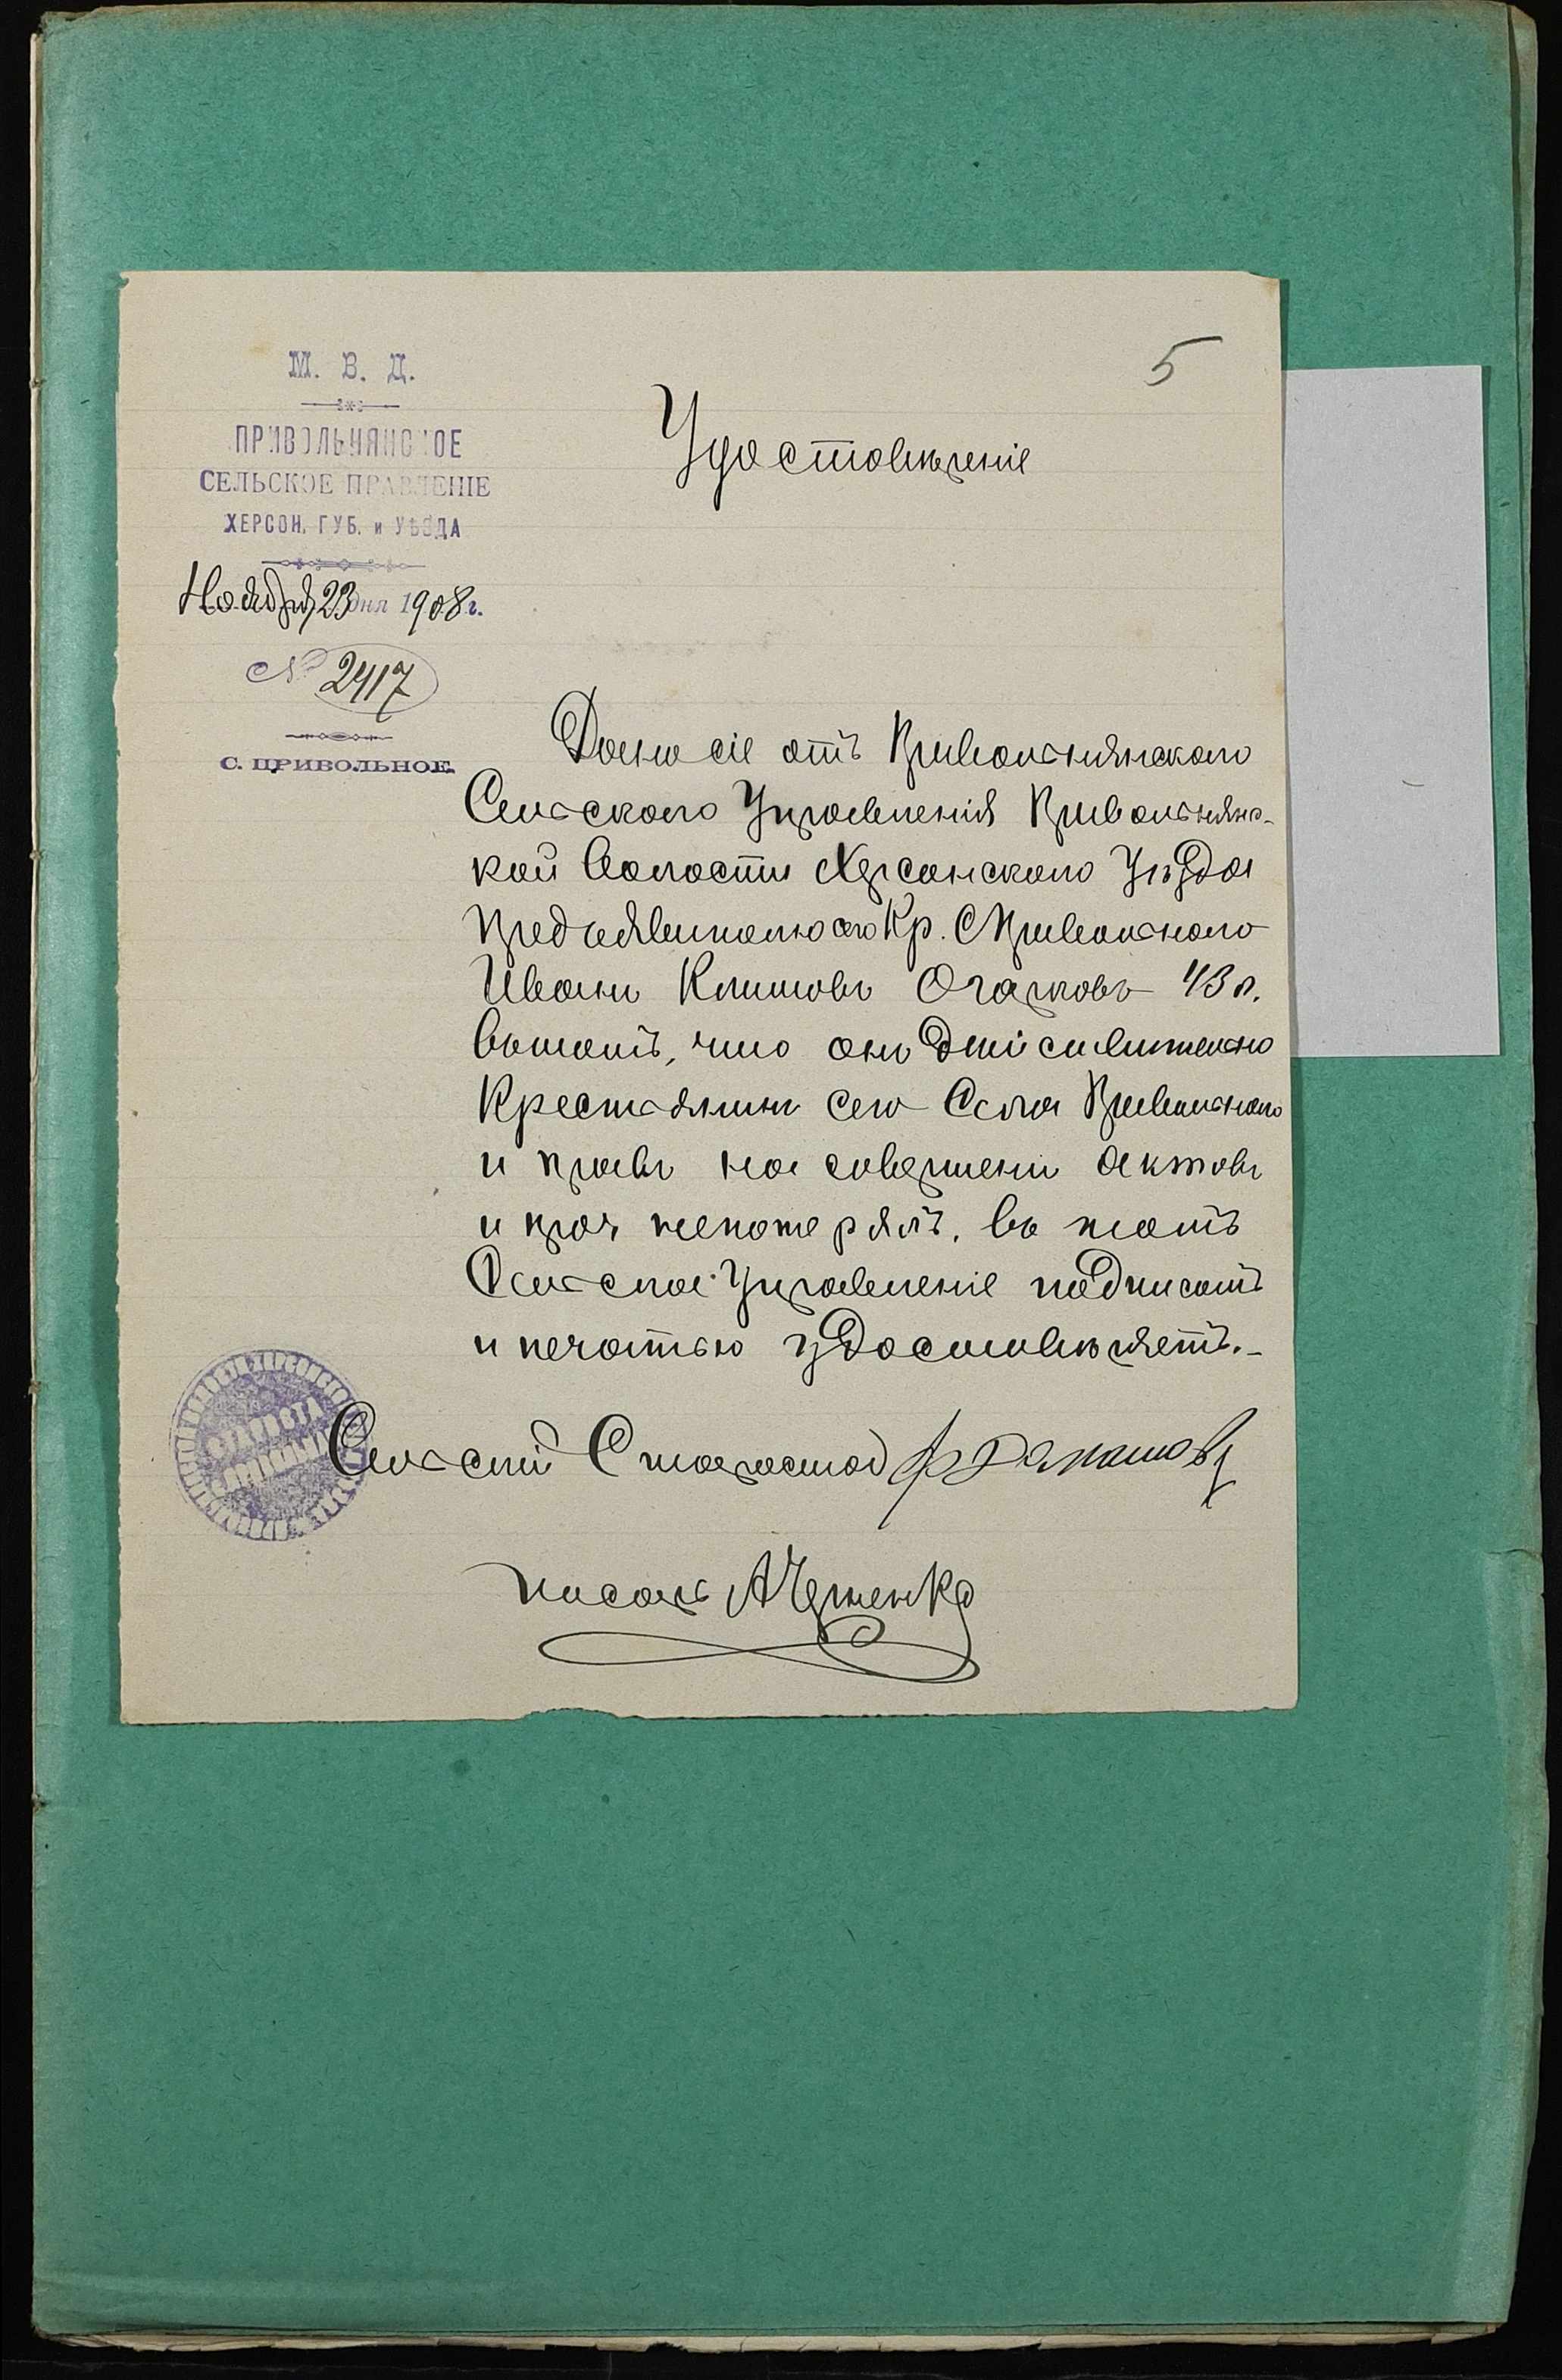 5
М. В. Д.
ПРИВОЛЬНЯНСКОЕ
СЕЛЬСКОЕ ПРАВЛЕНІЕ
ХЕРСОН. ГУБ. и УѢЗДА
Ноября 23 дня 1908 г.
№ 2417
С. ПРИВОЛЬНОЕ.
Удостовѣреніе
Дано сіе отъ Привольнянскаго
Сельскаго Управленія Привольнянс-
кой Волости Херсонскаго Уѣзда
предъявителю сего Кр. С Привольнаго
Иванъ Климовъ Очаковъ 43 л.
въ томъ, что онъ дѣйствительно
Крестьянинъ сего Села Привольнаго
и правъ на совершени актовъ
и проч непотерялъ, въ томъ
Сельское Управленіе подписомъ
и печатью удостовѣряетъ.-
Сельскій Староста
писарь